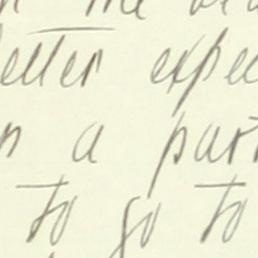 the
better expec
n a part
to go to